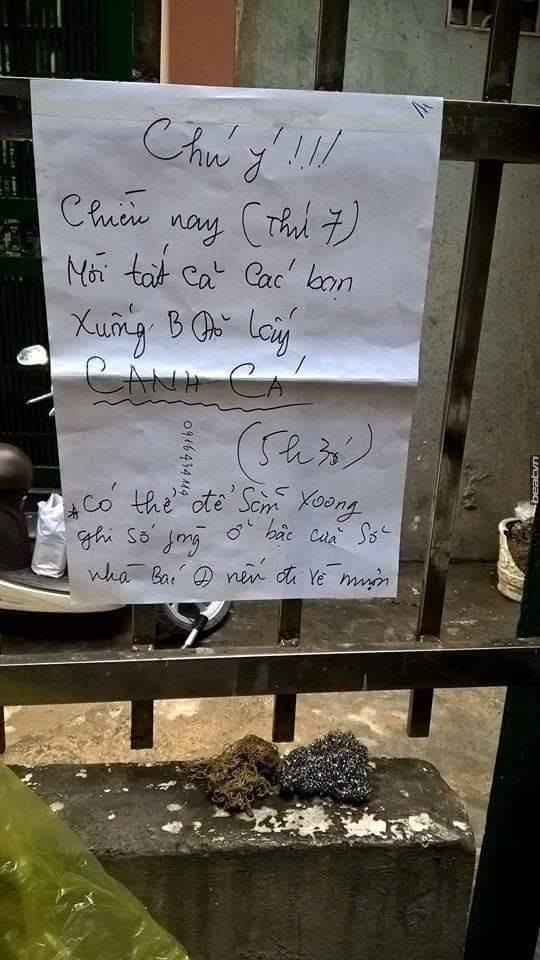 Chú ý!!!
Chiều nay (Thứ 7)
Mời tất cả các bạn
Xuống B lấy
CANH CÁ
(5h30)
*Có thể để Sẵn Xoong
ghi số ở bậc cửa Sổ
nhà Bác nếu đi về muộn
beatvn